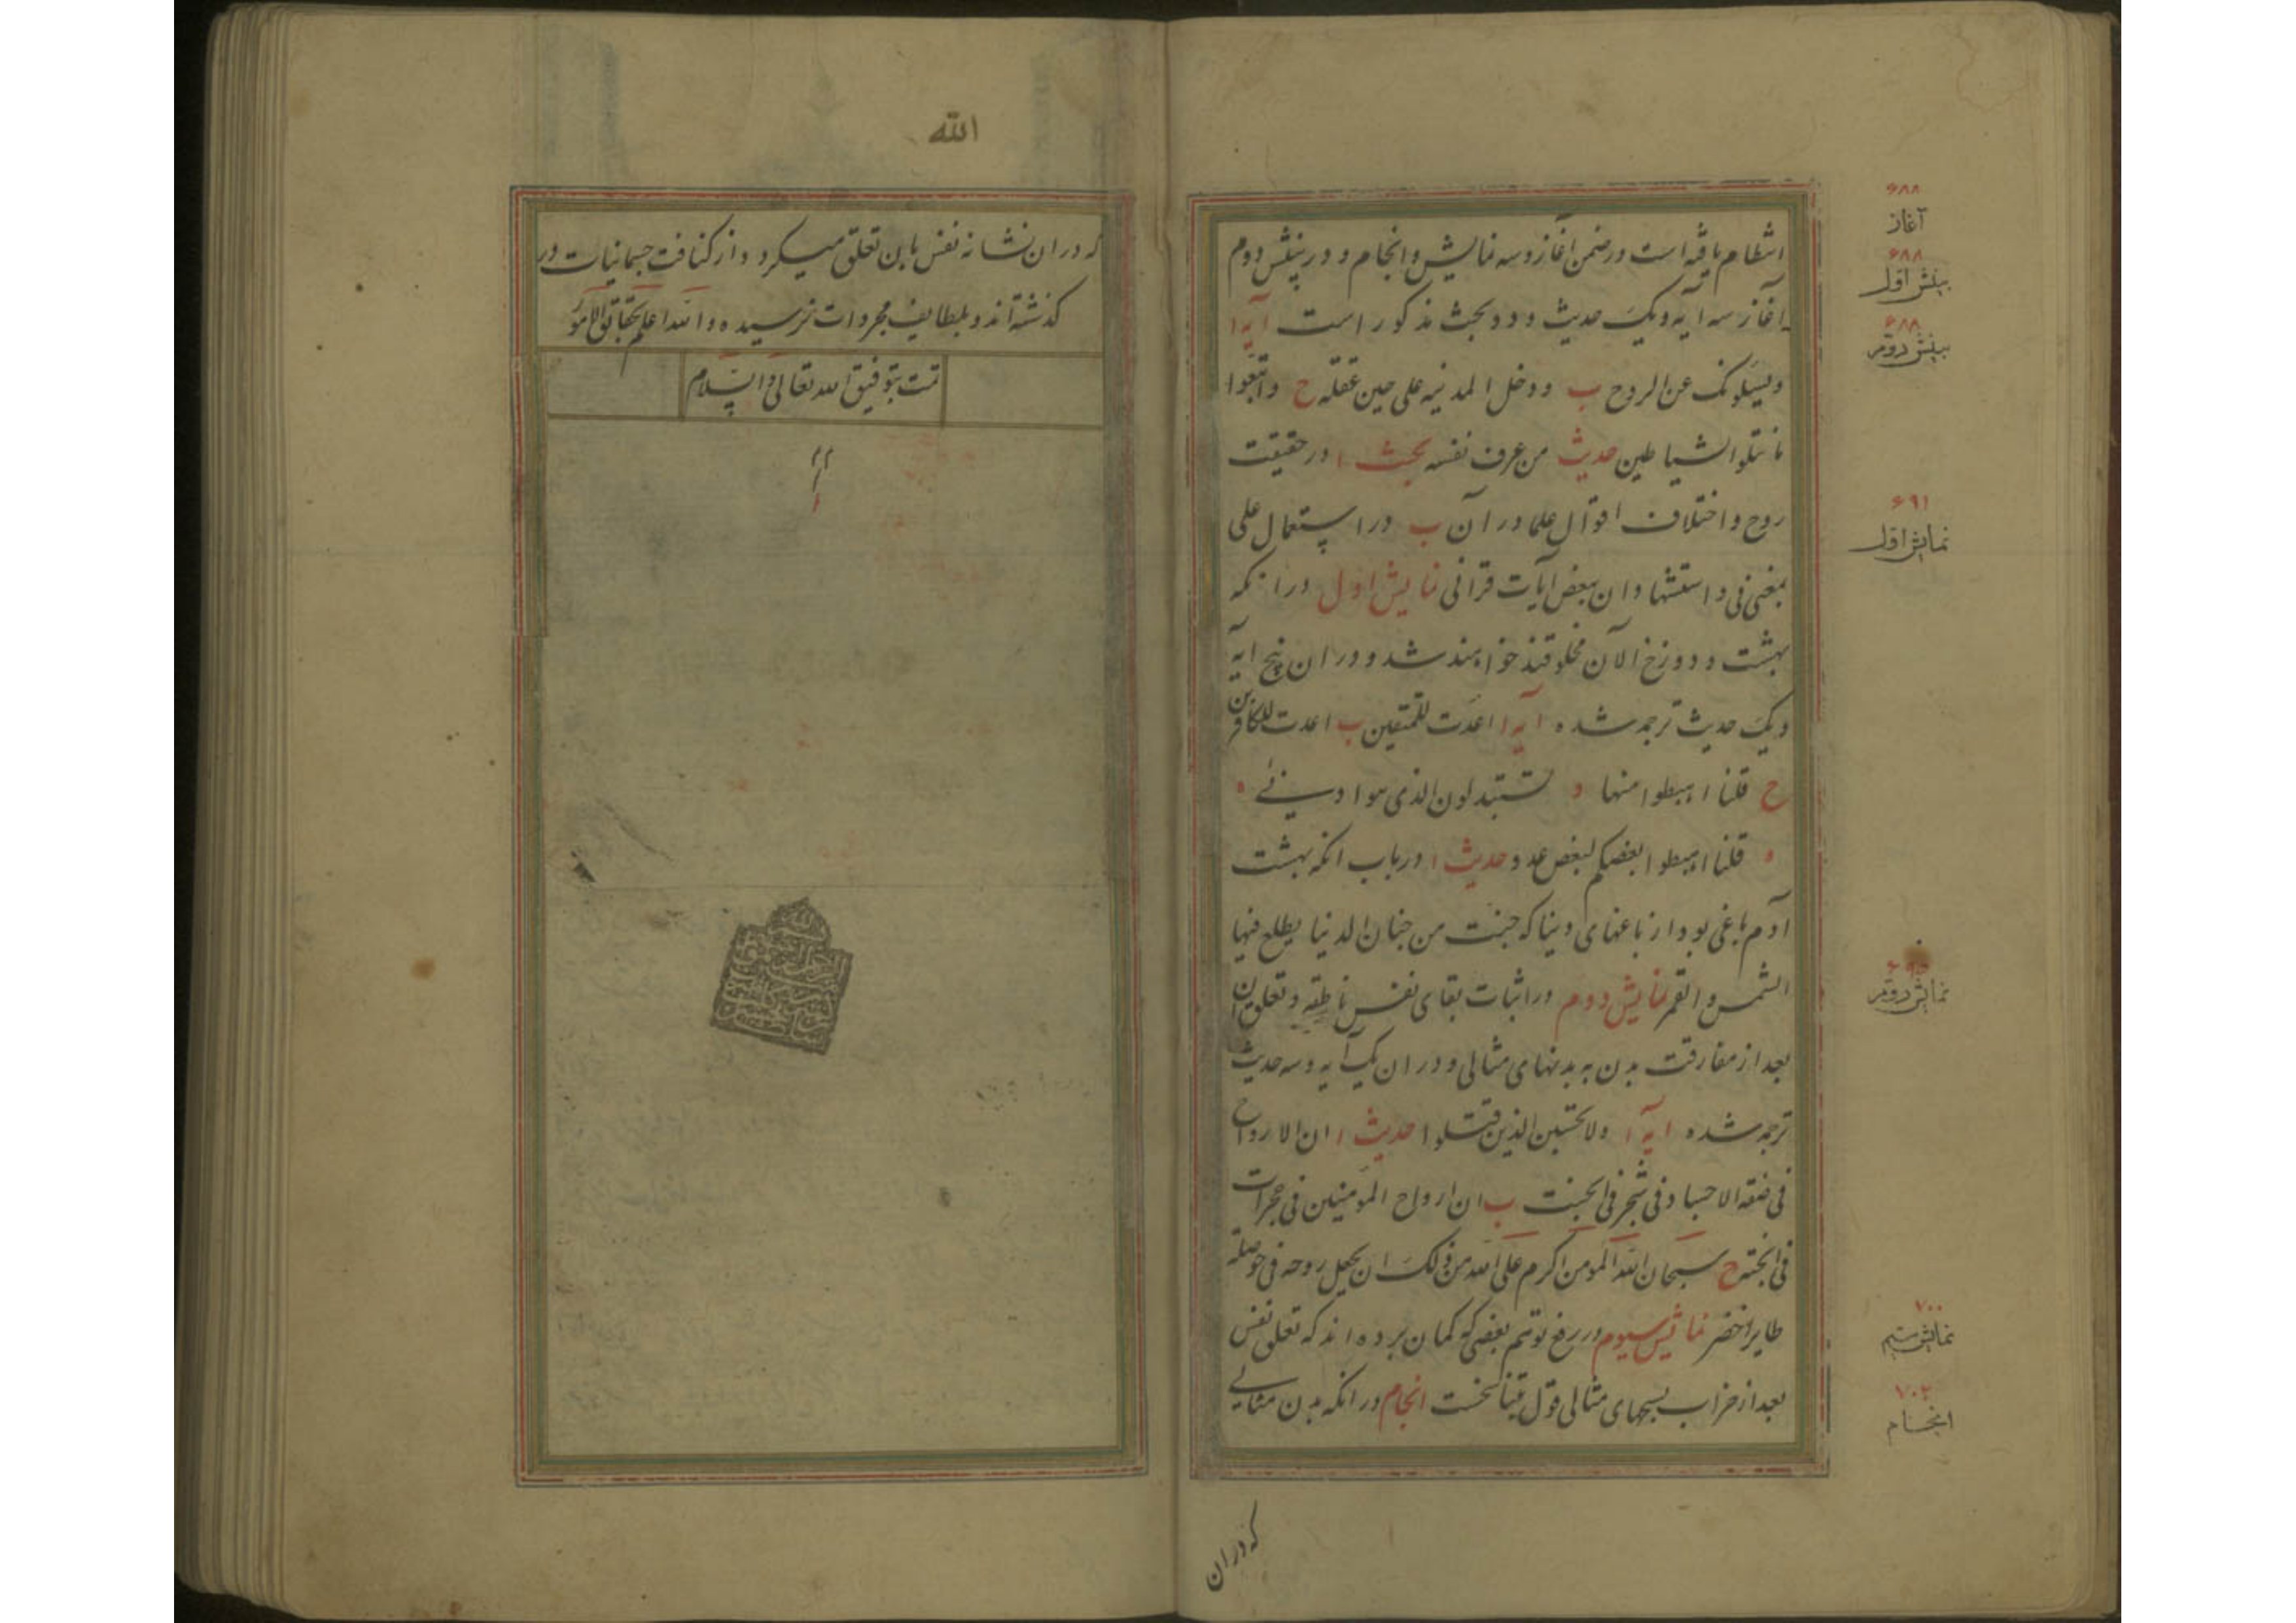 ۶۸۸
آغاز
۶۸۸
بینش اول
۶۸۸
بینش دوم
۶۹۱
نمایش اول
نمایش دوم
۷۰۰
نمایش سیم
۷۰۲
انجام
انتظام یافته است در ضمن آغاز و سه نمایش و انجام و در بینش دوم
آغاز سه آیه و یک حدیث و دو بحث مذکور است آیه ا
ویسئلونک عن الروح ب ودخل المدینه علی حین غفله ح واتبعوا
ما تتلوا الشیاطین حدیث من عرف نفسه بحث ا در حقیقت
روح و اختلاف اقوال علما در آن ب در استعمال علی
بمعنی فی و استشهاد ان ببعض آیات قرانی نمایش اول در انکه
بهشت و دوزخ الآن مخلوقند خواهند شد و در ان پنج آیه
و یک حدیث ترجمه شده آیه ا اعدت للمتقین ب اعدت للکافرین
ح قلنا اهبطوا منها د تستبدلون الذی هو ادنی ه
ه قلنا اهبطوا بعضکم لبعض عدو حدیث ا در باب انکه بهشت
آدم باغی بود از باغهای دنیا که جنت من جنان الدنیا یطلع فیها
الشمس والقمر نمایش دوم در اثبات بقای نفس ناطقه و تعلق ان
بعد از مفارقت بدن به بدنهای مثالی و در ان یک آیه و سه حدیث
ترجمه شده آیه ا ولا تحسبن الذین قتلوا حدیث ا ان الارواح
فی صفه الاجساد فی شجر فی الجنت ب ان ارواح المومنین فی حجرات
فی الجنه ح سبحان الله المومن اکرم علی الله من ذلک ان یجعل روحه فی حوصله
طایر اخضر نمایش سیوم در رفع توهم بعضی که گمان برده اند که تعلق نفس
بعد از خراب بجسمهای مثالی قول بتناسخست انجام در انکه بدن مثالی
که در ان
الله
که در ان نشانه نفس باین تعلق میگیرد و از کثافت جسمانیات در
گذشته اند و بلطایف مجردات نرسیده و الله اعلم بحقایق الامور
تمت بتوفیق الله تعالی والسلام